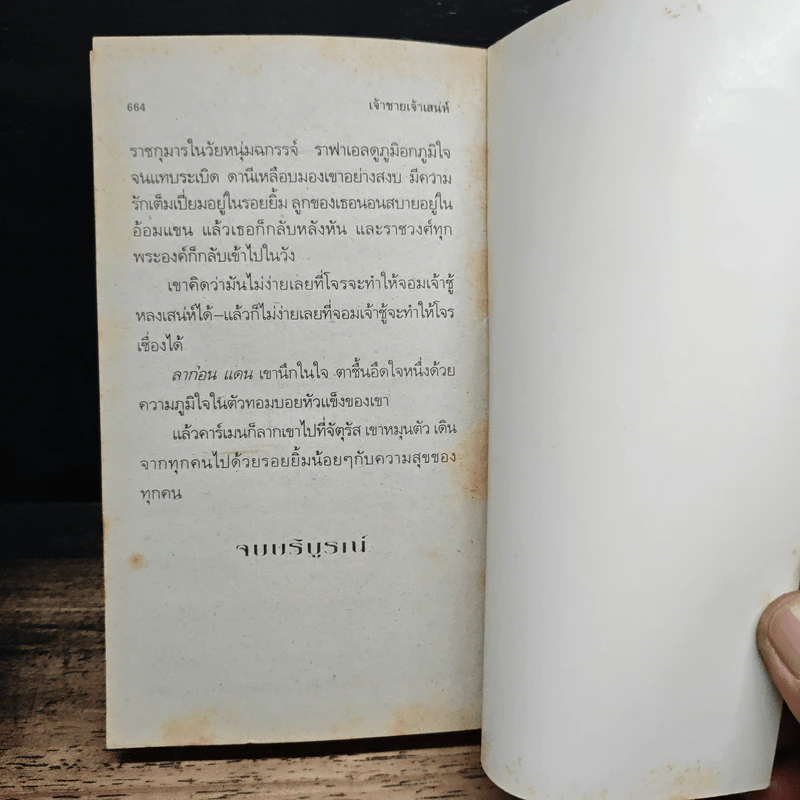 664
เจ้าชายเจ้าเสน่ห์
ราชกุมารในวัยหนุ่มฉกรรจ์ ราฟาเอลดูภูมิอกภูมิใจ
จนแทบระเบิด ดานีเหลือบมองเขาอย่างสงบ มีความ
รักเต็มเปี่ยมอยู่ในรอยยิ้ม ลูกของเธอนอนสบายอยู่ใน
อ้อมแขน แล้วเธอก็กลับหลังหัน และราชวงศ์ทุก
พระองค์ก็กลับเข้าไปในวัง
เขาคิดว่ามันไม่ง่ายเลยที่โจรจะทำให้จอมเจ้าชู้
หลงเสน่ห์ได้–แล้วก็ไม่ง่ายเลยที่จอมเจ้าชู้จะทำให้โจร
เชื่องได้
ลาก่อน แดน เขานึกในใจ ตาชื้นอึดใจหนึ่งด้วย
ความภูมิใจในตัวทอมบอยหัวแข็งของเขา
แล้วคาร์เมนก็ลากเขาไปที่จัตุรัส เขาหมุนตัว เดิน
จากทุกคนไปด้วยรอยยิ้มน้อยๆกับความสุขของ
ทุกคน
จบบริบูรณ์